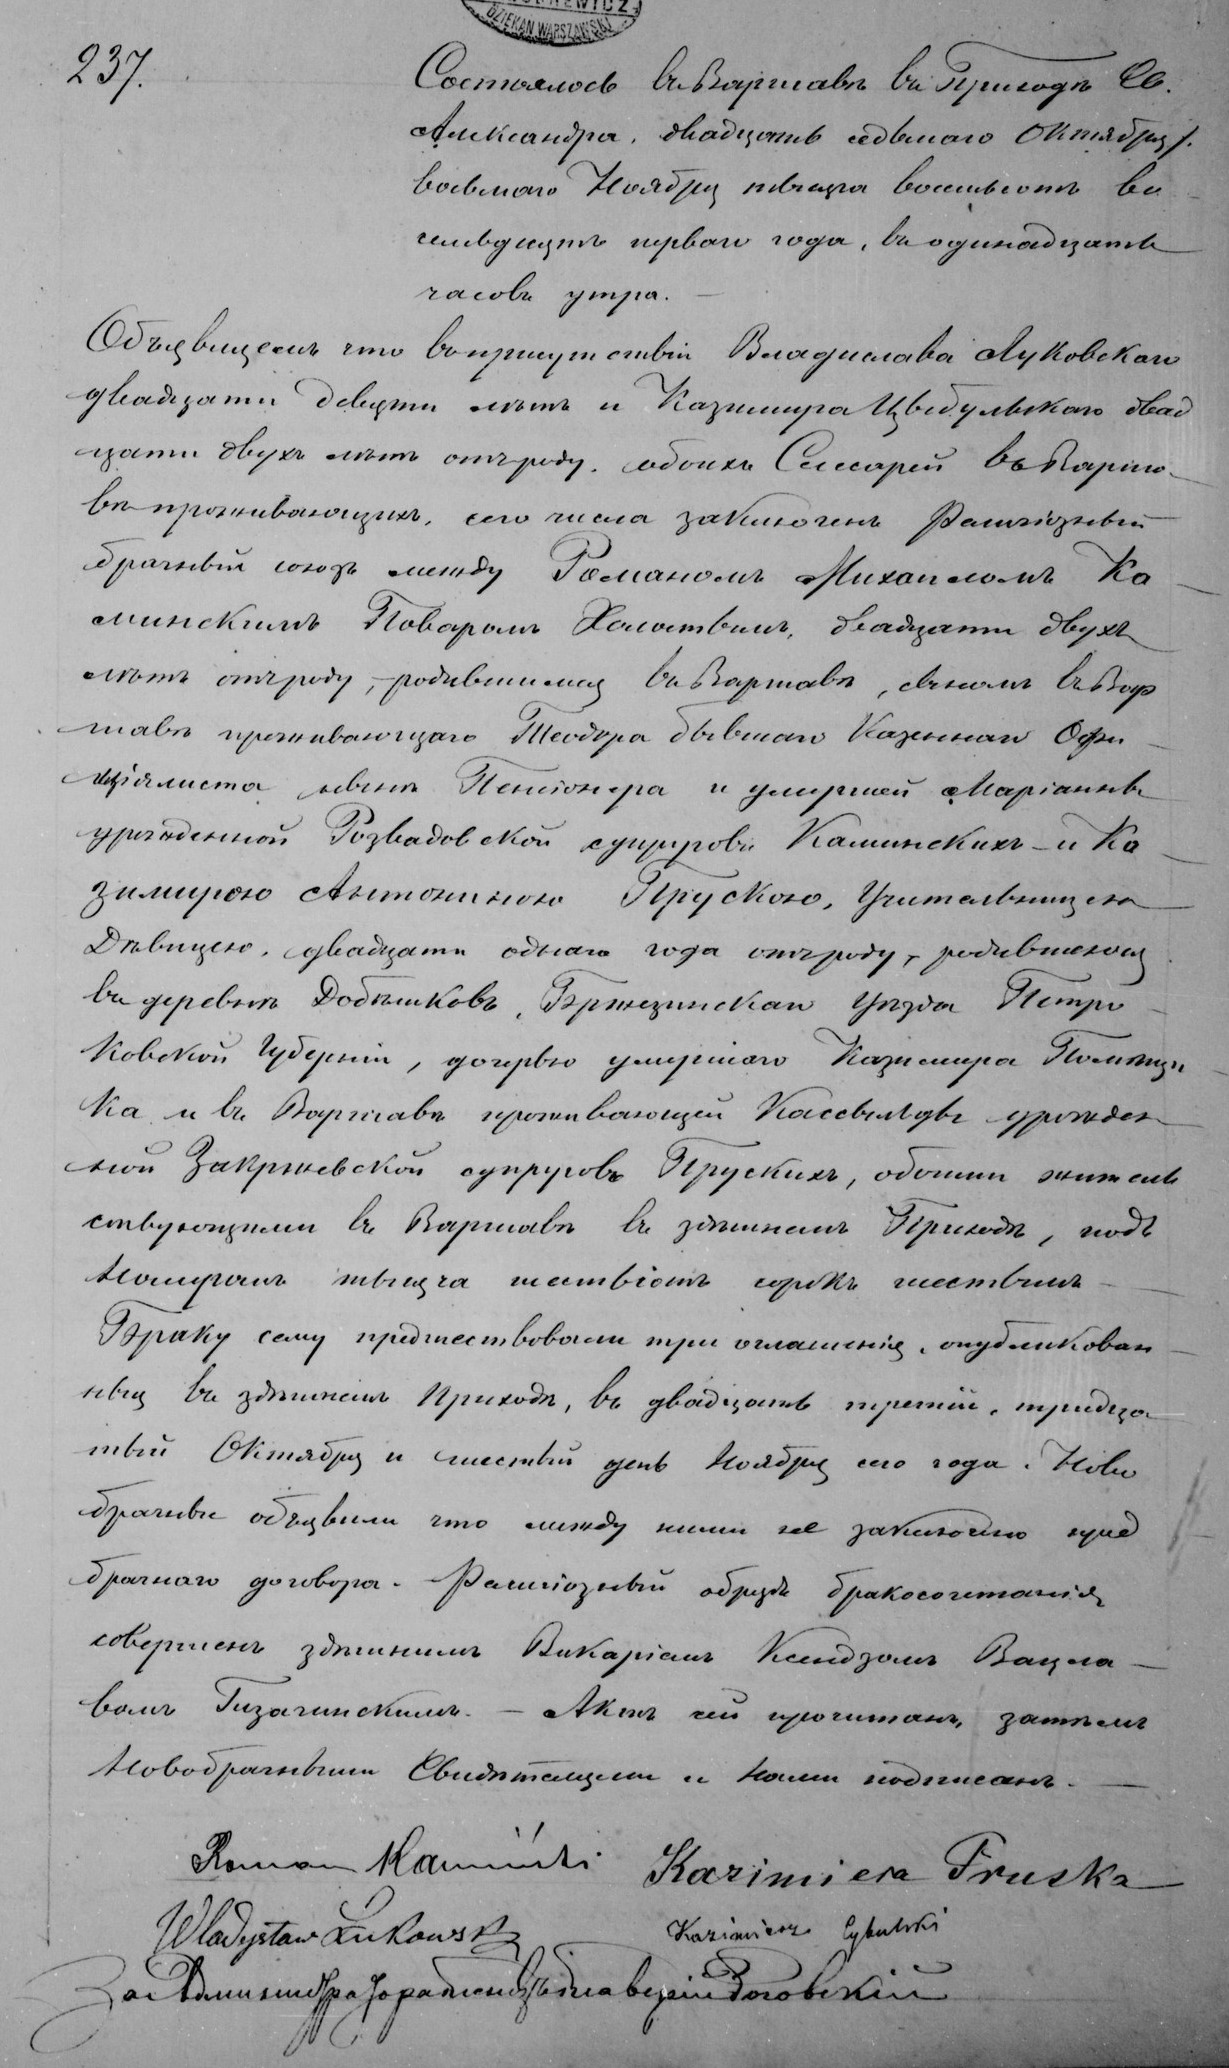 DZIEKAN WARSZAWSKI
237.
Состоялось въ Варшавѣ въ Приходѣ Св.
Александра, двадцать седьмаго Октября /
восьмаго Ноября тысяча восемьсотъ во
семьдесятъ перваго года, въ одинадцать
часовъ утра. —
Объявляемъ что въ присутствіи Владислава Луковскаго
двадцати девяти лѣтъ и Казимира Цыбульскаго двад
цати двухъ лѣтъ отъ роду, обоихъ Слесарей въ Варша
вѣ проживающихъ, сего числа заключенъ Религіозный
брачный союзъ между Романомъ Михаиломъ Ка
минскимъ Поваромъ Холостымъ, двадцати двухъ
лѣтъ отъ роду, родившимся въ Варшавѣ, сыномъ въ Вар
шавѣ проживающаго Теодора бывшаго Казеннаго Офи
ціялиста нынѣ Пенсіонера и умершей Маріанны
урожденной Розвадовской супруговъ Каминскихъ — и Ка
зимирою Антониною Прускою, Учительницею
Дѣвицею, двадцати одного года отъ роду, родившеюся
въ деревнѣ Добѣшковъ, Бржезинскаго Уѣзда Петро
ковской Губерніи, дочерью умершаго Казимира Помѣщи
ка и въ Варшавѣ проживающей Касыльды урожден
ной Закржевской супруговъ Прускихъ, обоими житель
ствующими въ Варшавѣ въ здѣшнемъ Приходѣ, подъ
Номеромъ тысяча шестьсотъ сорокъ шестымъ —
Браку сему предшествовали три оглашенія, опубликован
ныя въ здѣшнемъ Приходѣ, въ двадцать третій, тридца
тый Октября и шестый день Ноября сего года. Ново
брачные объявили что между ними не заключено пред
брачнаго договора. Религіозный обрядъ бракосочетанія
совершенъ здѣшнимъ Викаріемъ Ксендзомъ Вацла
вомъ Гизачинскимъ. — Актъ сей прочитанъ, затѣмъ
Новобрачными Свидѣтелями и Нами подписанъ. —
Roman Kamiński Kazimiera Pruska
Władysław Łukowski Kazimierz Cybulski
За Администратора